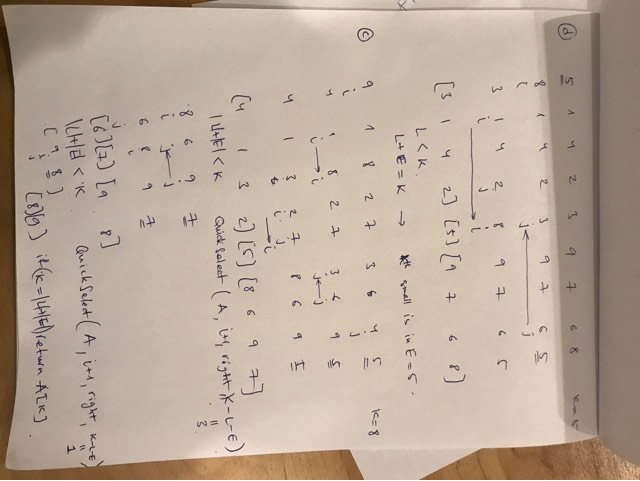 (d) 5 1 4 2 3 9 7 6 8 K=5
8 1 4 2 3 9 7 6 5
i j j
3 1 4 2 8 9 7 6 5
i j i
[3 1 4 2] [5] [9 7 6 8]
L < K.
L+E = K → small is in E = 5.
(c) 9 1 8 2 7 3 6 4 5 K=8
i j
4 1 8 2 7 3 6 9 5
i i j
4 1 3 2 7 8 6 9 5
i j i
[4 1 3 2] [5] [8 6 9 7]
|L|+|E| < K QuickSelect (A, i+1, right, K-L-E)
" 3
8 6 9 7
i j
6 8 9 7
j i
[6] [7] [9 8]
|L|+|E| < K QuickSelect (A, i+1, right, K-L-E)
" 1
[9 8] [8][9] if (K = |L|+|E|) return A[K].